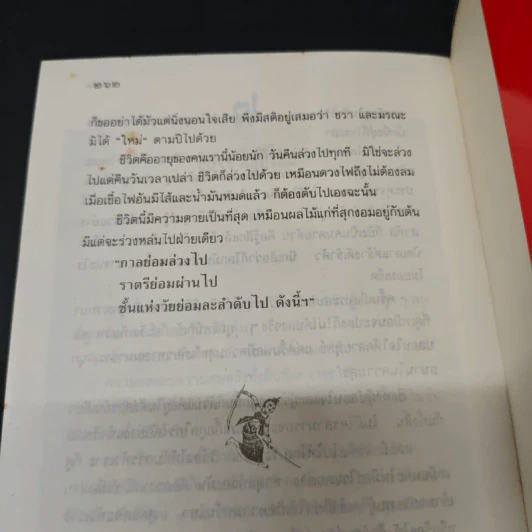 ๒๖๒
ก็ขออย่าได้มัวแต่นิ่งนอนใจเสีย พึงมีสติอยู่เสมอว่า ชรา และมรณะ
มิได้ "ใหม่" ตามปีไปด้วย
ชีวิตคืออายุของคนเรานี้น้อยนัก วันคืนล่วงไปทุกที มิใช่จะล่วง
ไปแต่คืนวันเวลาเปล่า ชีวิตก็ล่วงไปด้วย เหมือนดวงไฟถึงไม่ต้องลม
เมื่อเชื้อไฟอันมีไส้และน้ำมันหมดแล้ว ก็ต้องดับไปเองฉะนั้น
ชีวิตนี้มีความตายเป็นที่สุด เหมือนผลไม้แก่ที่สุกงอมอยู่กับต้น
มีแต่จะร่วงหล่นไปฝ่ายเดียว
"กาลย่อมล่วงไป
ราตรีย่อมผ่านไป
ชั้นแห่งวัยย่อมละลำดับไป ดังนี้ฯ"